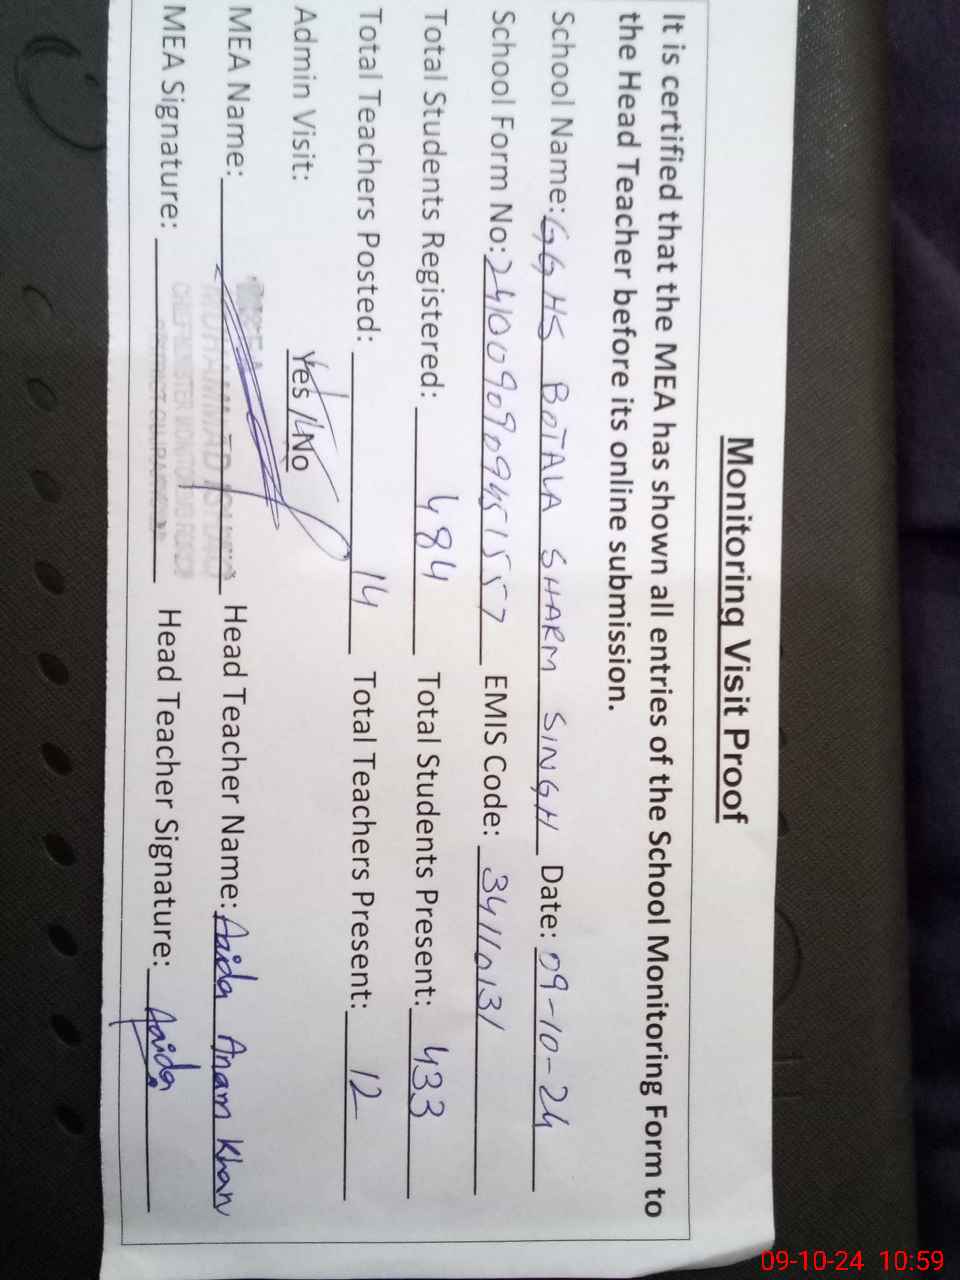 Monitoring Visit Proof
It is certified that the MEA has shown all entries of the School Monitoring Form to
the Head Teacher before its online submission.
School Name: GGHS BOTALA SHARM SINGH Date: 09-10-24
School Form No: EMIS Code: 34110131
Total Students Registered: 484 Total Students Present: 433
Total Teachers Posted: 14 Total Teachers Present: 12
Admin Visit: Yes / No
MEA Name: Head Teacher Name: Aaida Anam Khan
MEA Signature: Head Teacher Signature: Aaida
09-10-24 10:59